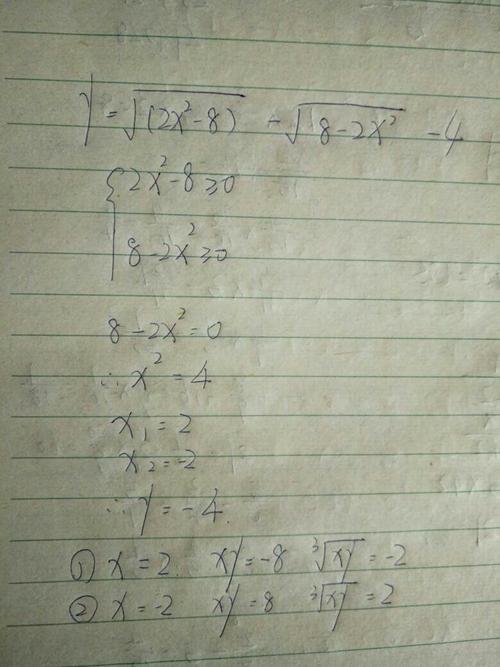 y = √(2x²-8) - √8-2x² -4
{ 2x²-8≥0
8-2x²≥0
8-2x²=0
∴ x² = 4
x₁ = 2
x₂ = -2
∴ y = -4.
① x = 2. xy = -8 ³√xy = -2
② x = -2 xy = 8 ³√xy = 2